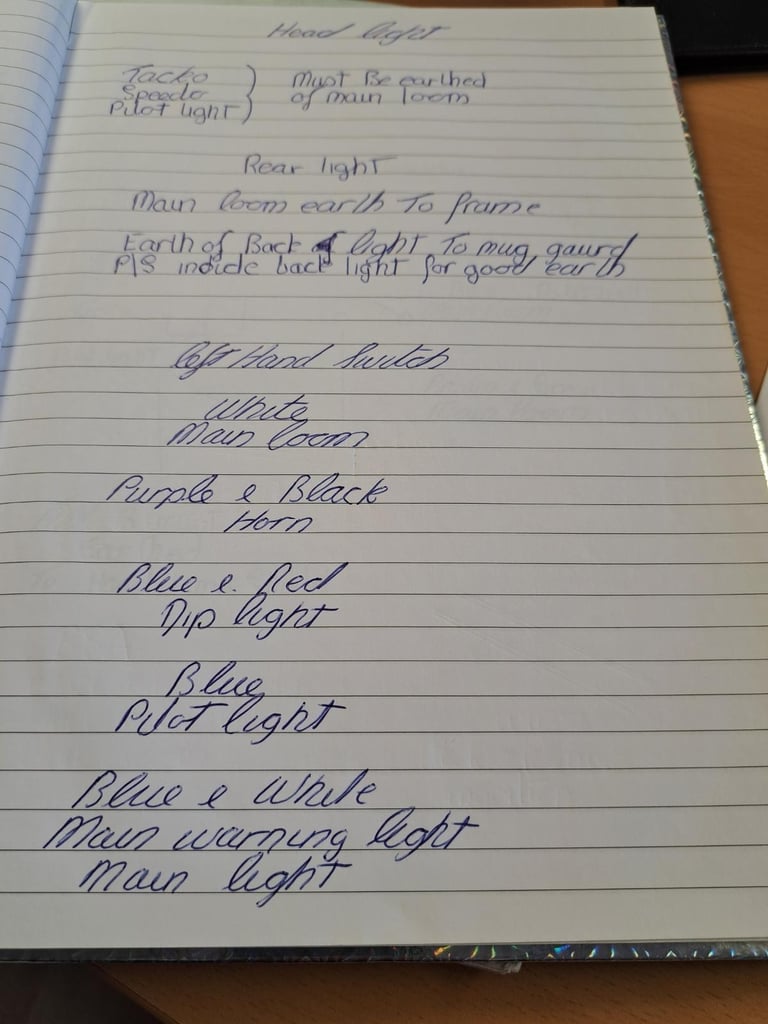 Head light
Tacko
Speedo
Pilot light
Must Be earthed
of main loom
Rear light
Main loom earth To frame
Earth of Back light To mug gaurd
P/S indide back light for good earth
left Hand Switch
White
Main loom
Purple e Black
Horn
Blue e. Red
Dip light
Blue
Pilot light
Blue e White
Main warning light
Main light